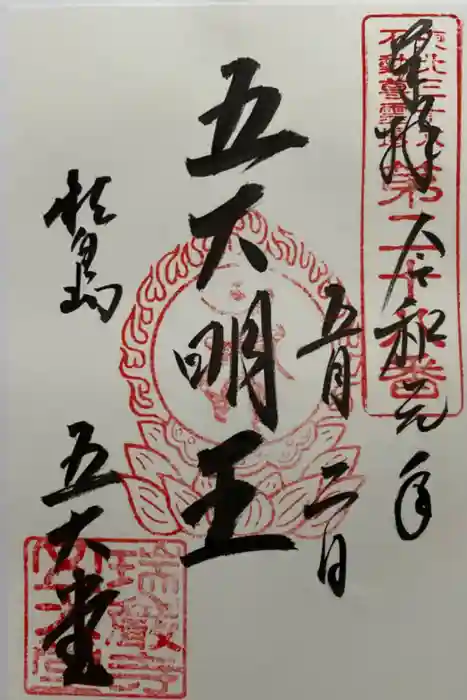 奉拝
令和元年
五月二日
五大明王
松島
五大堂
東北三十六
不動尊霊場
第二十番